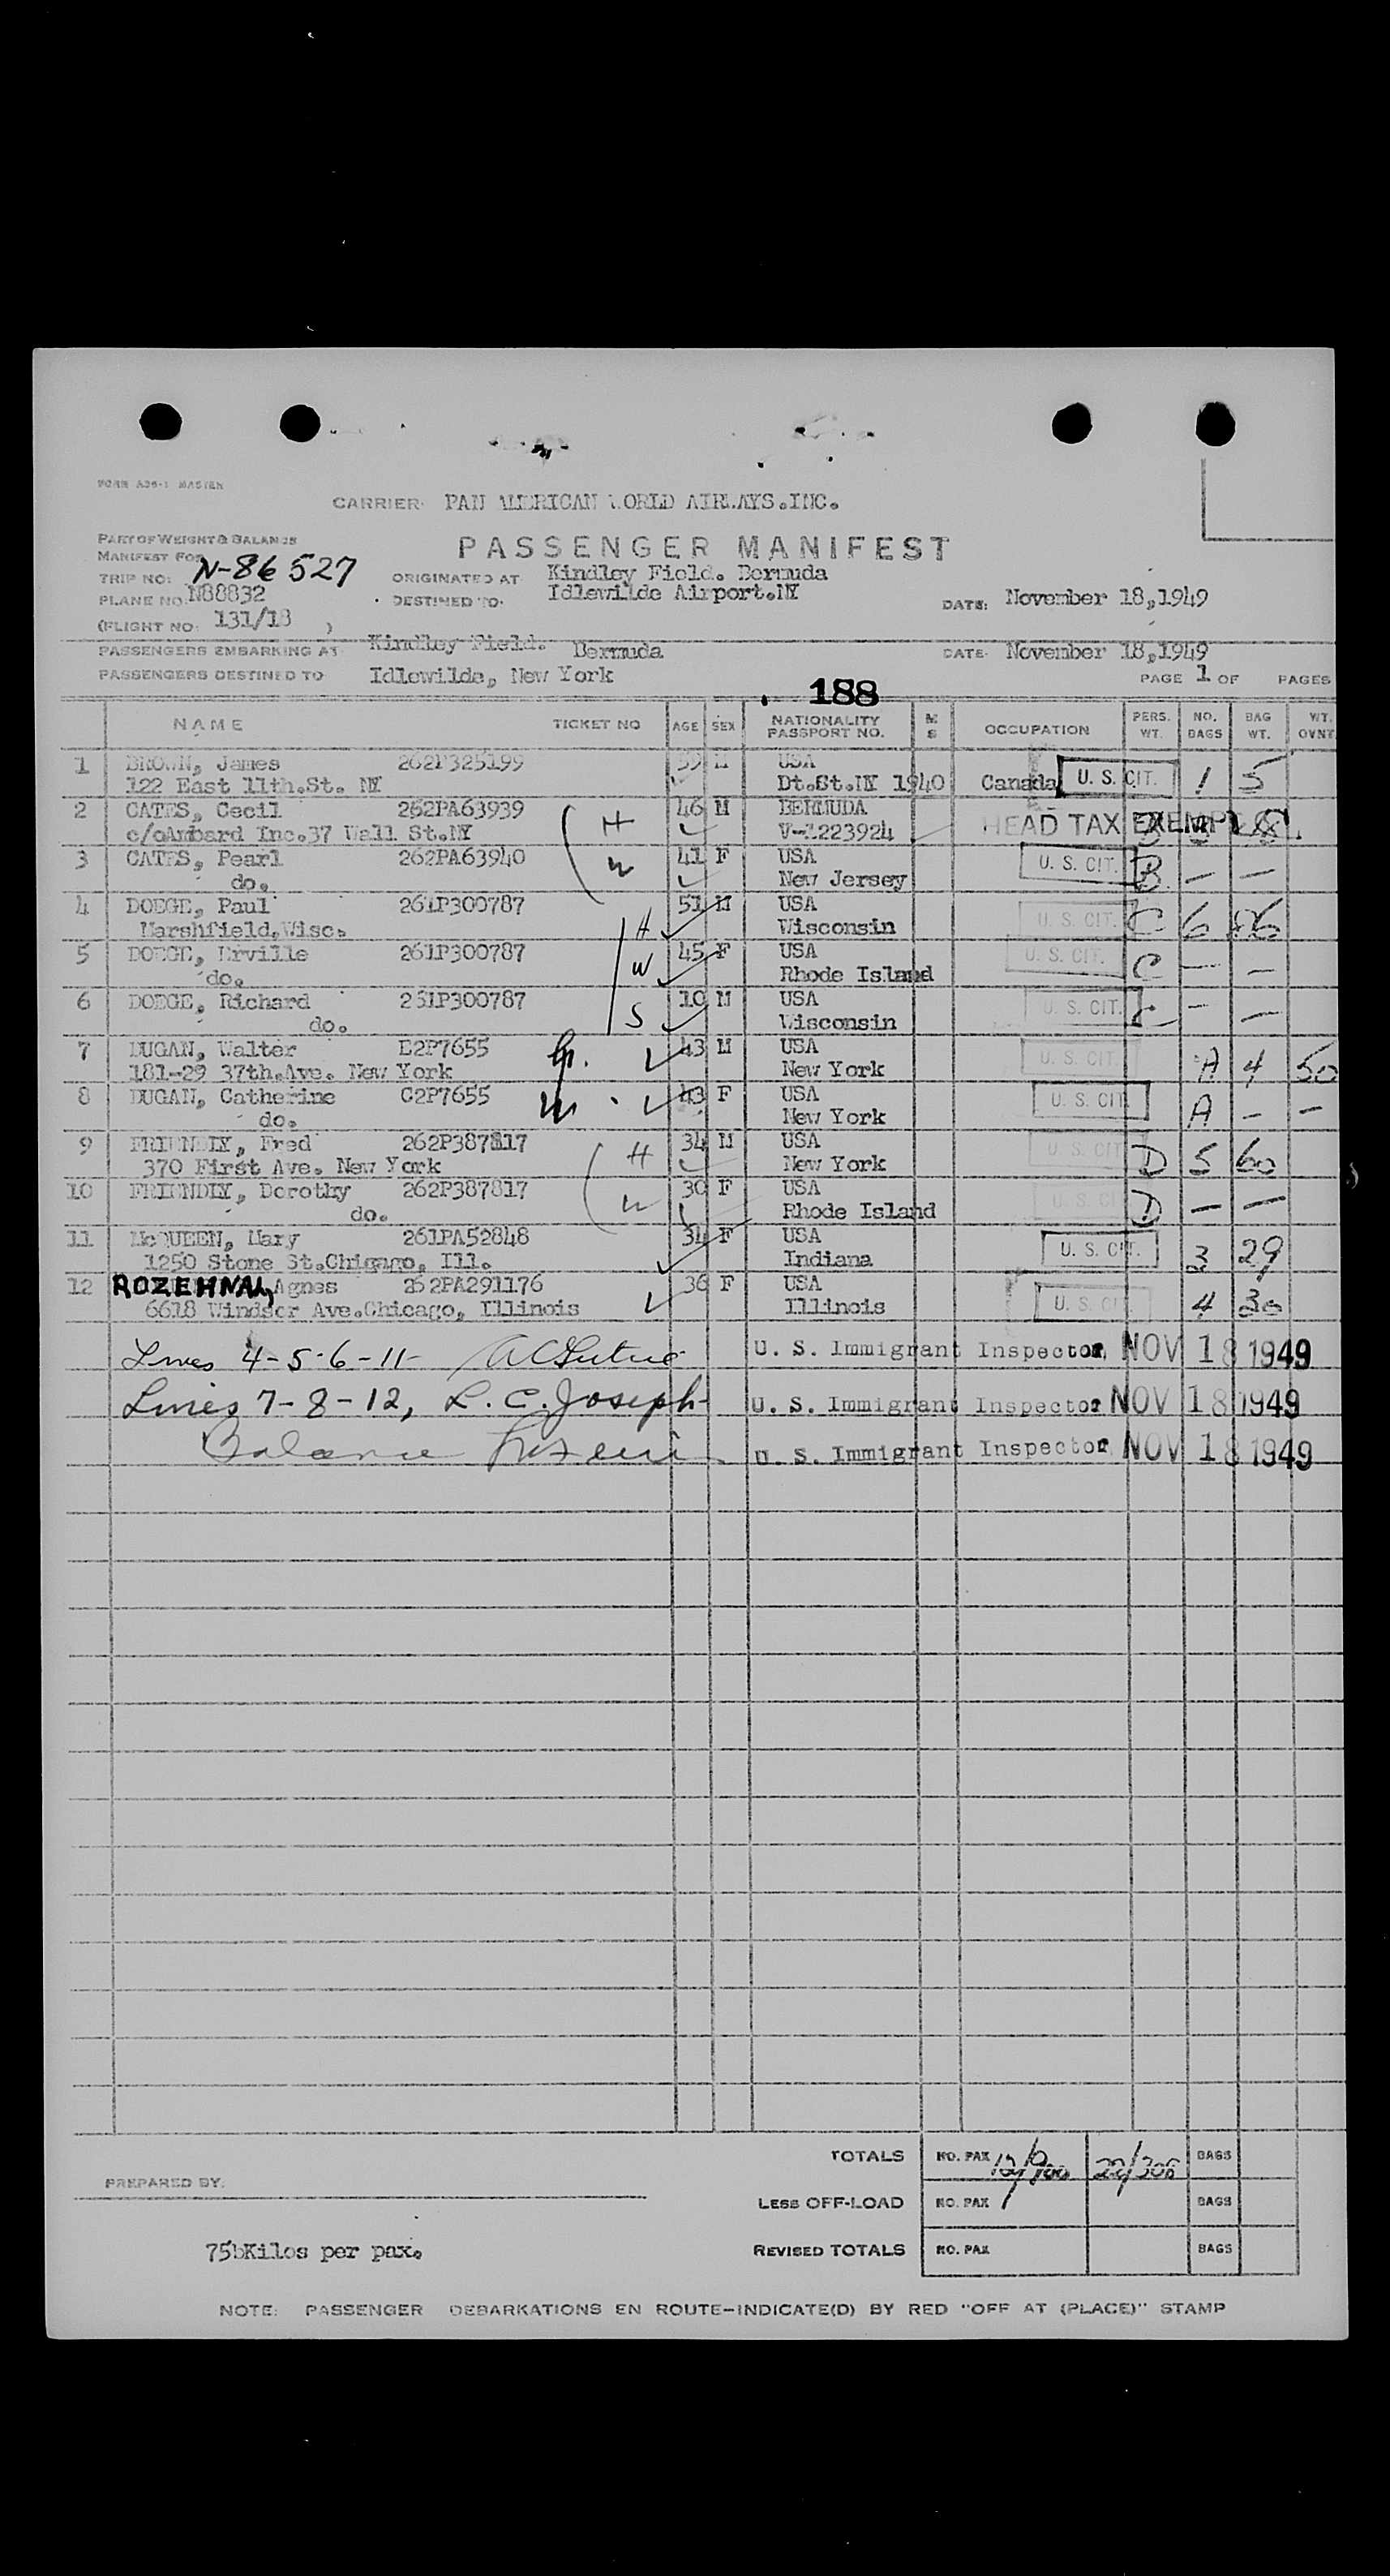 FORM A36-1 MASTER
CARRIER: PAN AMERICAN WORLD AIRWAYS.INC.
PART OF WEIGHT & BALANCE
MANIFEST FOR
PASSENGER MANIFEST
TRIP NO: N-86527
ORIGINATED AT Kindley Field. Bermuda
PLANE NO. N88832
DESTINED TO: Idlewilde Airport.NY
DATE: November 18,1949
(FLIGHT NO: 131/18 )
PASSENGERS EMBARKING AT Kindley Field. Bermuda DATE: November 18,1949
PASSENGERS DESTINED TO Idlewilde, New York PAGE 1 OF PAGES
188
NAME TICKET NO AGE SEX NATIONALITY PASSPORT NO. M S OCCUPATION PERS. WT. NO. BAGS BAG WT. WT. OVNT.
1 BROWN, James 262P325199 39 M USA
122 East 11th.St. NY Dt.St.NY 1940 Canada U. S. CIT. 1 5
2 CATES, Cecil 262PA63939 H 46 M BERMUDA
c/oAmbard Inc.37 Wall St.NY V-1223924 HEAD TAX EXEMPT
3 CATES, Pearl 262PA63940 W 41 F USA U. S. CIT. B — —
do. New Jersey
4 DODGE, Paul 261P300787 H 51 M USA U. S. CIT. C 6 86
Marshfield,Wisc. Wisconsin
5 DODGE, Erville 261P300787 W 45 F USA U. S. CIT. C — —
do. Rhode Island
6 DODGE, Richard 261P300787 S 10 M USA U. S. CIT. C — —
do. Wisconsin
7 DUGAN, Walter E2P7655 43 M USA U. S. CIT. A 4 50
181-29 37th.Ave. New York New York
8 DUGAN, Catherine C2P7655 43 F USA U. S. CIT. A — —
do. New York
9 FRIENDLY, Fred 262P387817 H 34 M USA U. S. CIT. D 5 60
370 First Ave. New York New York
10 FRIENDLY, Dorothy 262P387817 W 30 F USA U. S. CIT. D — —
do. Rhode Island
11 McQUEEN, Mary 261PA52848 34 F USA U. S. CIT. 3 29
1250 Stone St.Chigago, Ill. Indiana
12 ROZEHNAL, Agnes 262PA291176 36 F USA U. S. CIT. 4 30
6618 Windsor Ave.Chicago, Illinois Illinois
Lines 4-5-6-11- U. S. Immigrant Inspector. NOV 18 1949
Lines 7-8-12, L. C. Joseph U. S. Immigrant Inspector NOV 18 1949
Balance U. S. Immigrant Inspector NOV 18 1949
TOTALS NO. PAX 12/900 22/306 BAGS
PREPARED BY:
LESS OFF-LOAD NO. PAX BAGS
75bKilos per pax. REVISED TOTALS NO. PAX BAGS
NOTE: PASSENGER DEBARKATIONS EN ROUTE-INDICATE(D) BY RED "OFF AT (PLACE)" STAMP